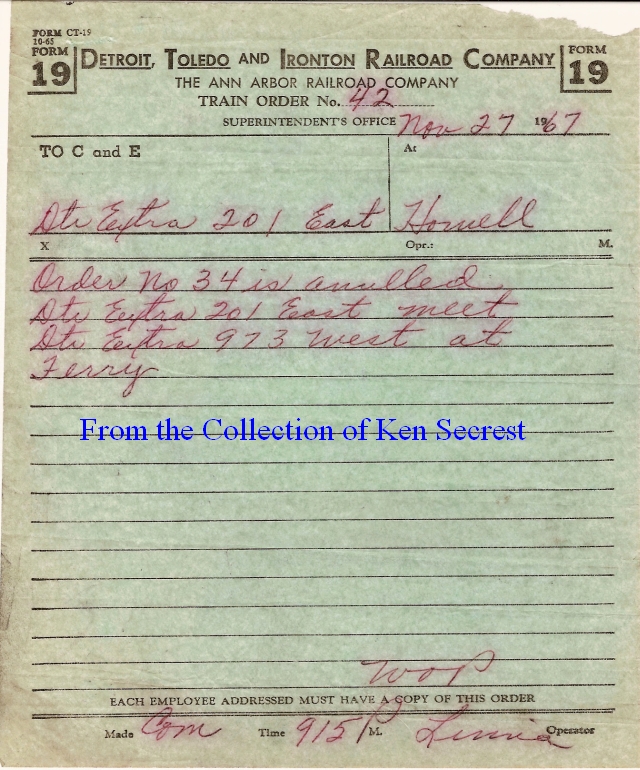 FORM CT-19
10-65
FORM 19
DETROIT, TOLEDO AND IRONTON RAILROAD COMPANY
FORM 19
THE ANN ARBOR RAILROAD COMPANY
TRAIN ORDER No. 42
SUPERINTENDENT'S OFFICE Nov 27 1967
TO C and E
At
Dti Extra 201 East
Howell
X
Opr.:
M.
Order No 34 is anulled
Dti Extra 201 East meet
Dti Extra 973 West at
Ferry
From the Collection of Ken Secrest
WOP
EACH EMPLOYEE ADDRESSED MUST HAVE A COPY OF THIS ORDER
Made Com Time 915 P M. Operator